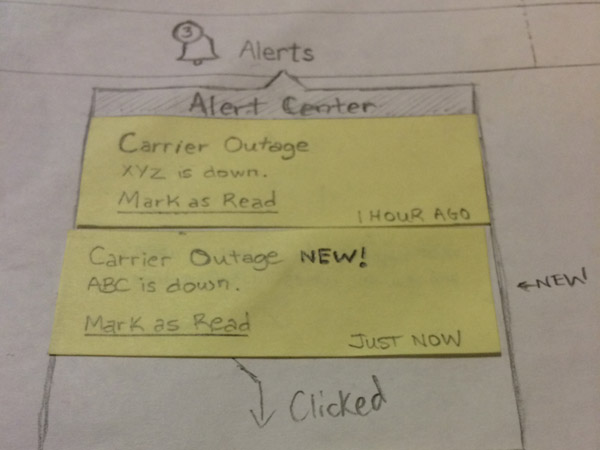 3
Alerts
Alert Center
Carrier Outage
XYZ is down.
Mark as Read
1 HOUR AGO
Carrier Outage NEW!
ABC is down.
←NEW
Mark as Read
JUST NOW
Clicked